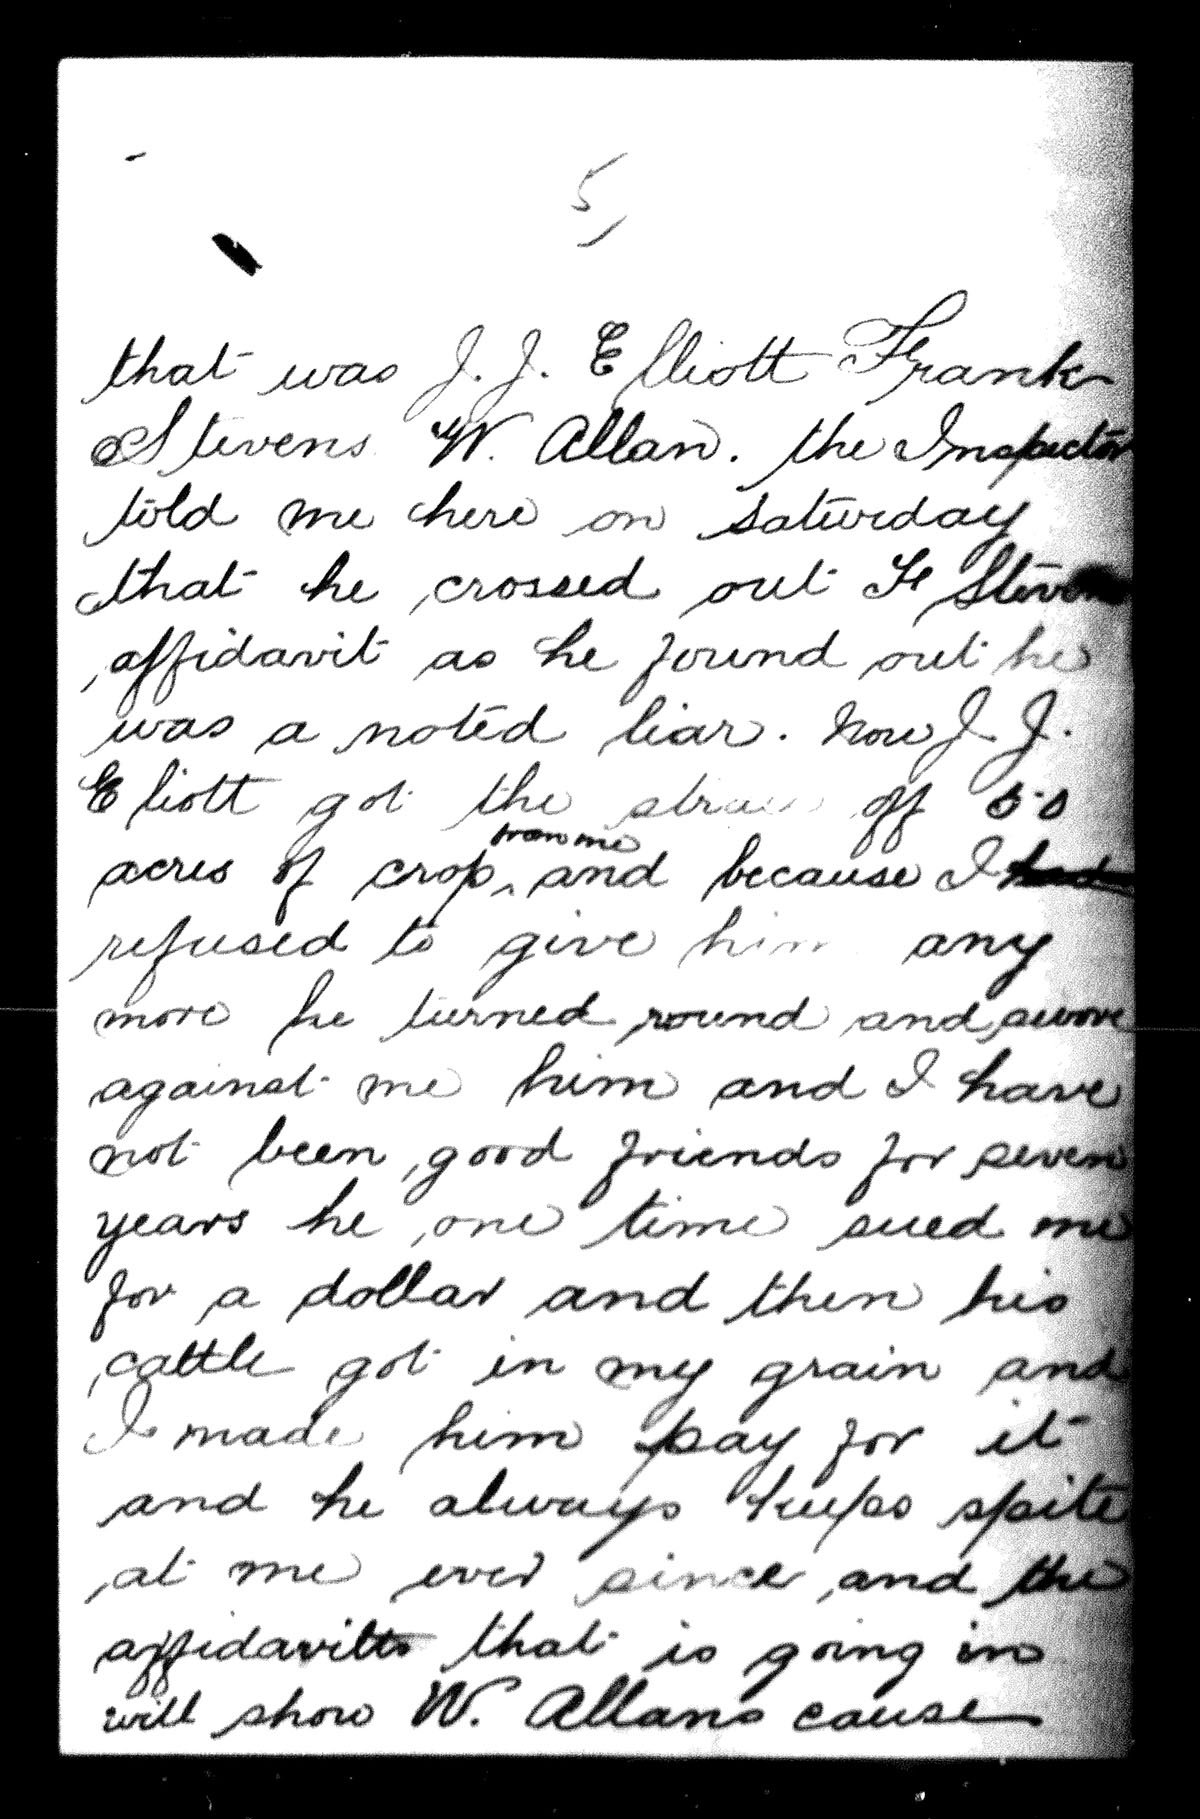 5,
that was J. J. Elliott Frank
Stevens W. Allan. the Inspector
told me here on saturday
that he crossed out F Stevens
affidavit as he found out he
was a noted liar. Now J. J.
Eliott got the straw off 50
acres of crop from me and because I had
refused to give him any
more he turned round and swore
against me him and I have
not been good friends for seven
years he one time sued me
for a dollar and then his
cattle got in my grain and
I made him pay for it
and he always keeps spite
at me ever since and the
affidavits that is going in
will show W. Allans cause